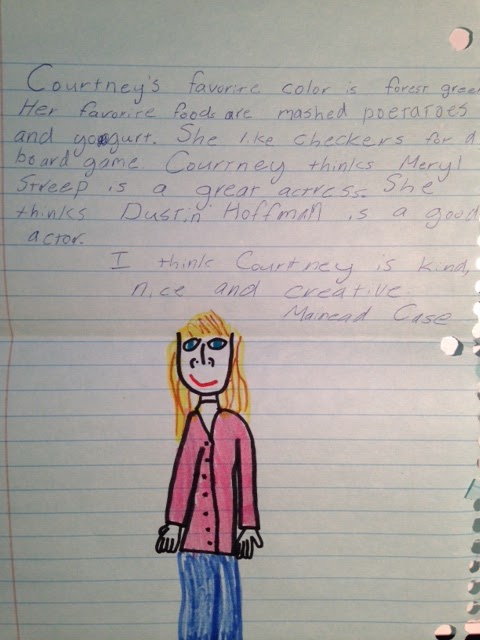 Courtney's favorite color is forest green
Her favorite foods are mashed poetatoes
and yogurt. She like checkers for a
board game Courtney thinks Meryl
Streep is a great actress. She
thinks Dustin Hoffman is a good
actor.
I think Courtney is kind,
nice and creative.
Mairead Case